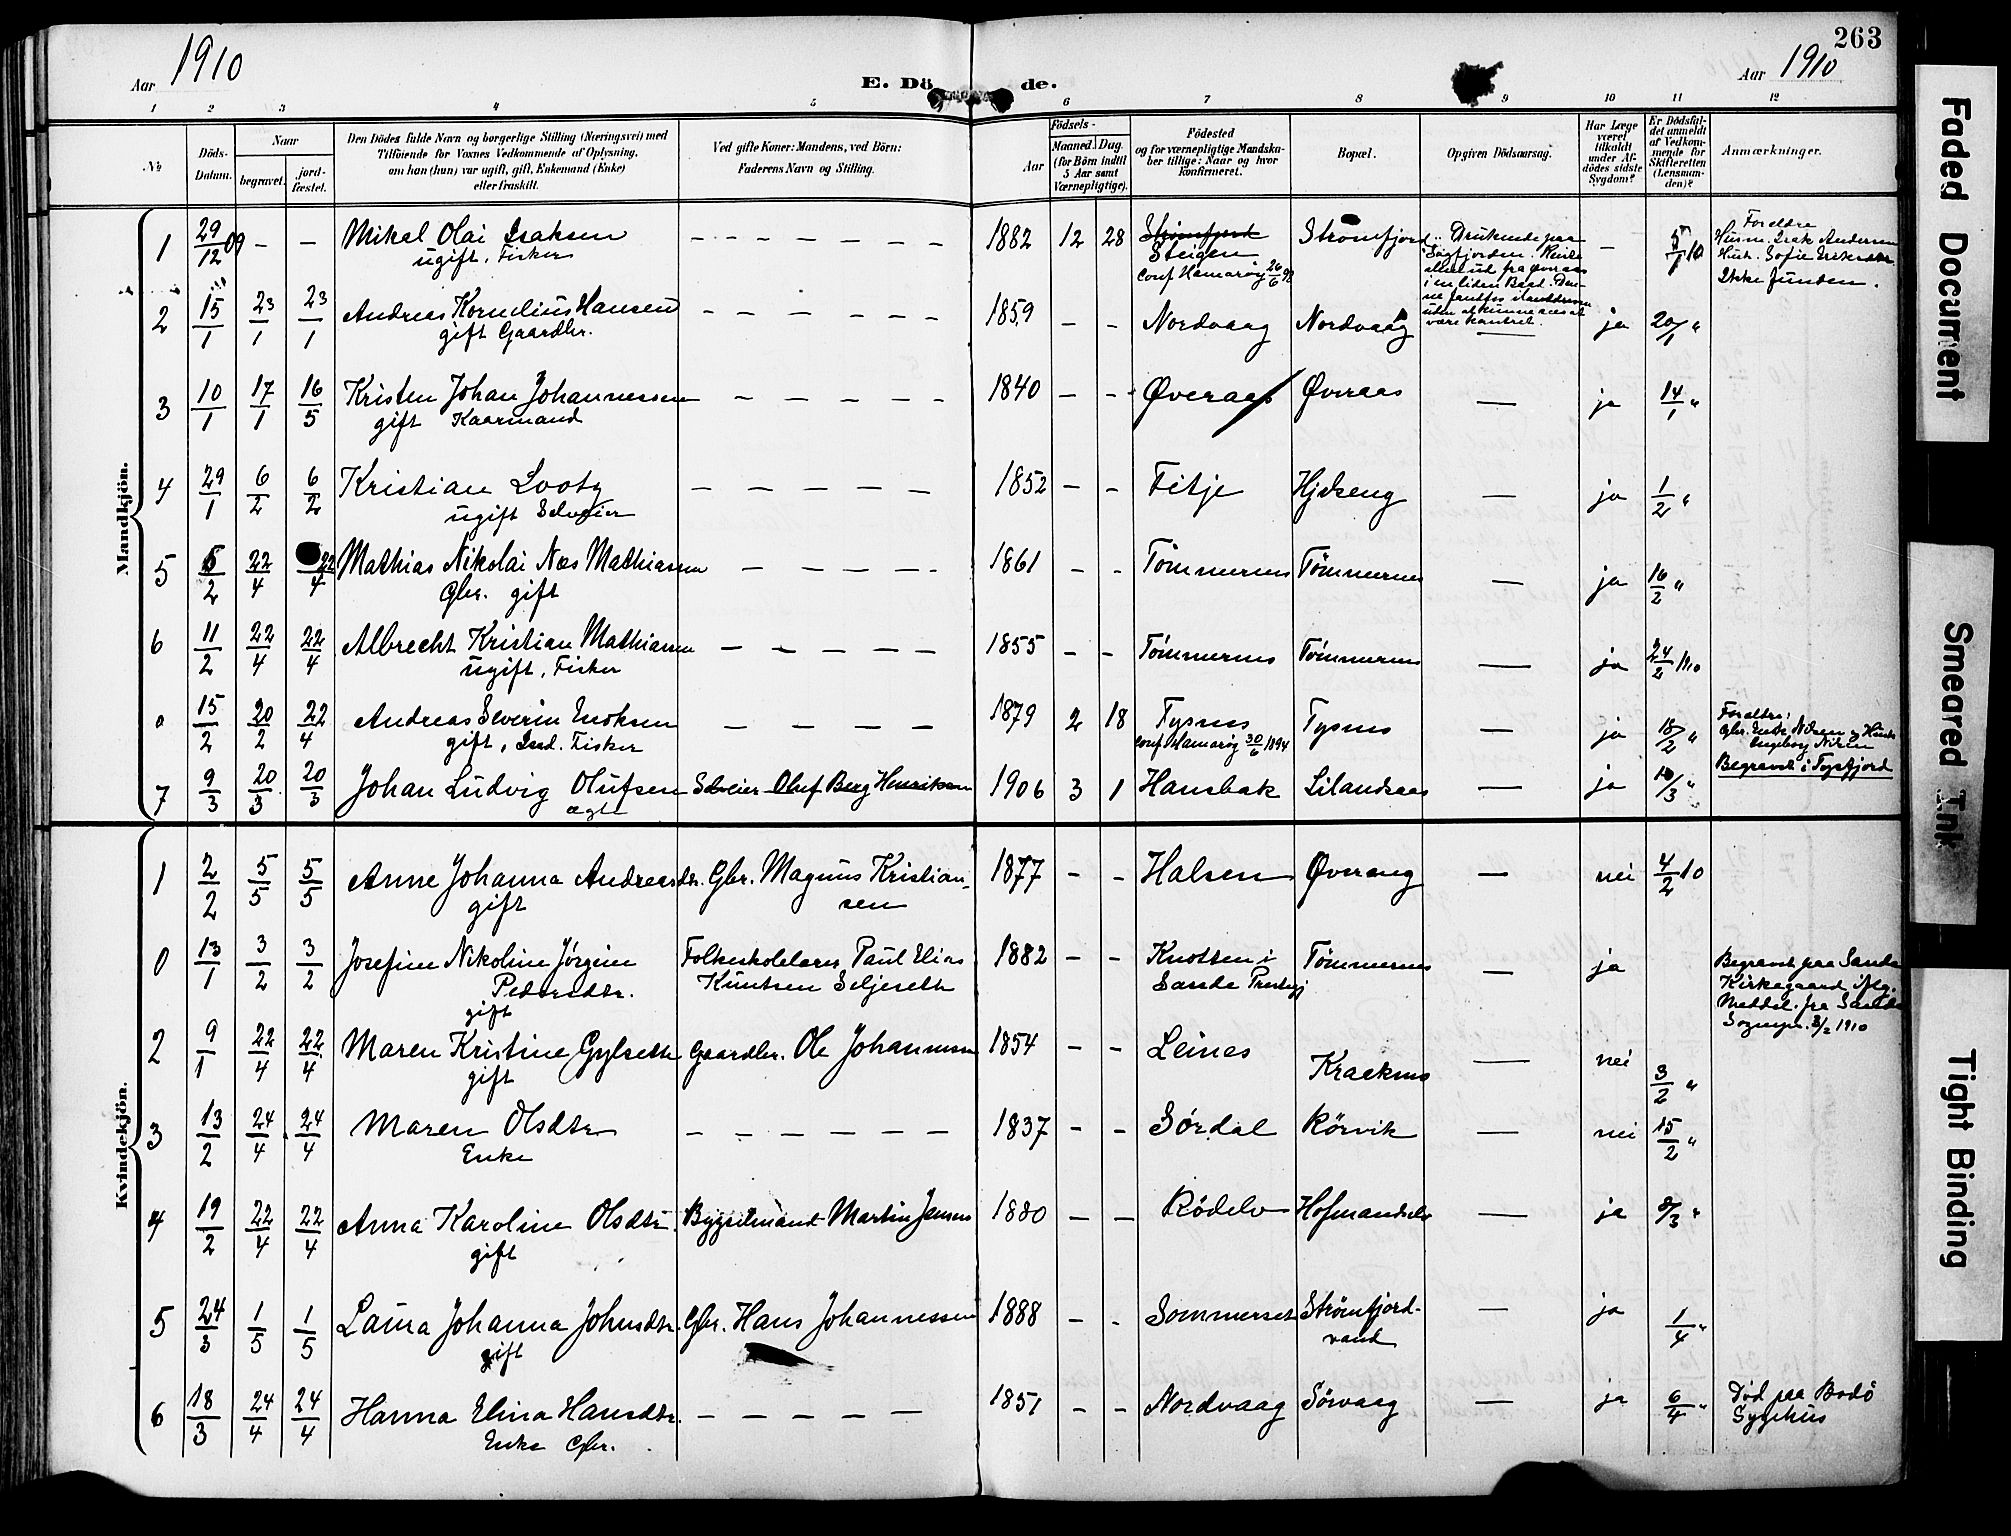 263
Aar 1910
E. Dö de.
Aar 1910
1 2 3 4 5 6 7 8 9 10 11 12
№
Döds-Datum.
Naar
begravet.
jord-fæstet.
Den Dödes fulde Navn og borgerlige Stilling (Næringsvei) med
Tilföiende for Voxnes Vedkommende af Oplysning,
om han (hun) var ugift, gift, Enkemand (Enke)
eller fraskilt.
Ved gifte Koner: Mandens, ved Börn:
Faderens Navn og Stilling.
Födsels-
Aar
Maaned. Dag.
(for Börn indtil
5 Aar samt
Værnepligtige).
Födested
og for værnepligtige Mandska-
ber tillige: Naar og hvor
konfirmeret.
Bopæl.
Opgiven Dödsaarsag.
Har Læge
været
tilkaldt
under Af-
dödes sidste
Sygdom?
Er Dödsfal-
det anmeldt
af Vedkom-
mende for
Skifteretten
(Lensman-
den)?
Anmærkninger.
Mandkjön.
1 29/12 09 – – Mikal Olai Isaksen – – – – – – 1882 12 28 Strømfjord Strömfjord – 5/1 10 Forældre
ugift, Fisker Steigen
conf Hamarøy 26/6 Ikke funden.
2 15/1 23/1 23/1 Andreas Kornelius Hansen – – – – – – 1859 – – Nordvaag Nordvaag — ja 20/1 "
gift Gaardbr.
3 10/1 17/1 16/5 Kristen Johan Johannessen – – – – – 1840 – – Øveraas Øveraas — ja 14/1 "
gift Kaarmand
4 29/1 6/2 6/2 Kristian – – – – – 1852 – – Fitje — ja 1/2 "
ugift Selveier
5 5/2 22/4 22/4 Mathias Nikolai Næs Mathiassen – – – – 1861 – – Tömmernes Tömmernes — ja 16/2 "
Gbr. gift
6 11/2 22/4 22/4 Albrecht Kristian Mathiassen – – – – – 1855 – – Tömmernes Tömmernes — ja 24/2 1910
ugift, Fisker
0 15/2 20/2 22/4 Andreas Severin Enoksen – – – – – 1879 2 18 Tysnes Tysnes — ja 18/2 " Forældre:
gift, Ind. Fisker conf Hamarøy 30/6 1894 Gbr. Enok Nilsen og Hustr.
Ingeborg Nilsen
Begravet i Tysfjord
7 9/3 20/3 20/3 Johan Ludvig Olufsen Selveier Oluf Berg Henriksen 1906 3 1 Hansbak Lilandsaas — ja 10/3 "
ægte
Kvindekjön.
1 2/2 5/5 5/5 Anne Johanna Andreasdtr. Gbr. Magnus Kristian- 1877 – – Halsen — nei 4/2 10
gift sen
0 13/1 3/2 3/2 Josefine Nikoline Jørgine Folkeskolelærer Paul Elias 1882 – – Knotten i Tömmernes — ja Begravet paa Sande
Pedersdtr. Knutsen Seljeseth Sande Prestegj Kirkegaard iflg.
gift Meddel. fra Sande
Sognepr. 8/2 1910
2 9/1 22/4 22/4 Maren Kristine Gylseth Gaardbr. Ole Johannessen 1854 – – Leines Kraakmo — nei 3/2 "
gift
3 13/2 24/4 24/4 Maren Olsdtr – – – – – – 1837 – – Sørdal Rörvik — nei 15/2 "
Enke
4 19/2 22/4 22/4 Anna Karoline Olsdtr. Bygselmand Martin Jensen 1880 – – Rödelv — ja 8/3 "
gift
5 24/3 1/5 1/5 Laura Johanna Johnsdtr. Gbr. Hans Johannessen 1888 – – Sommerset Strömfjord- — ja 1/4 "
gift vand
6 18/3 24/4 24/4 Hanna Elina Hansdtr. – – – – – 1851 – – Nordvaag Sörvaag — ja 6/4 " Död paa Bodö
Enke Gbr. Sygehus
Faded Document
Smeared Ink
Tight Binding